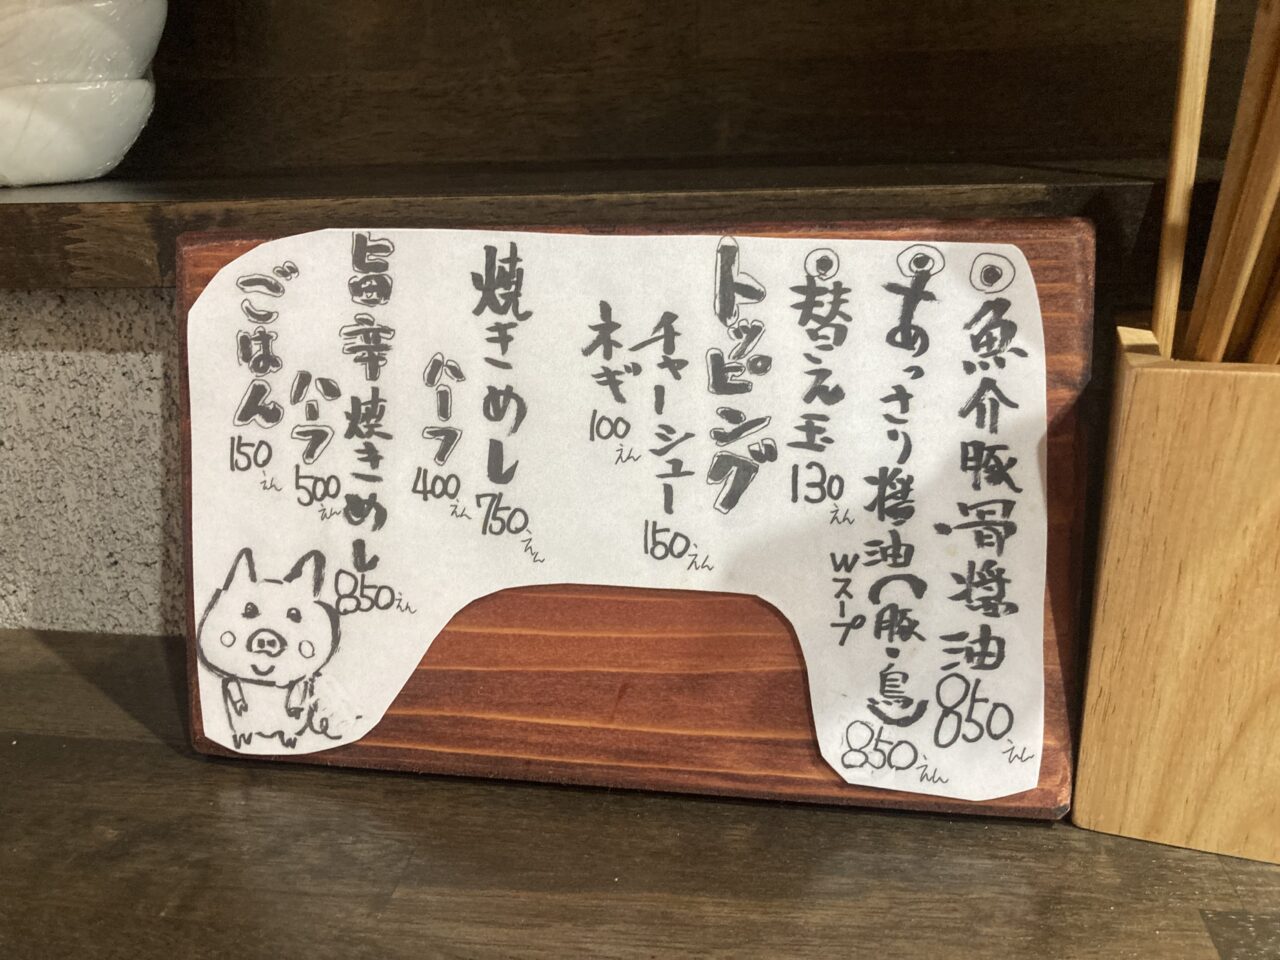 魚介豚骨醤油 850えん
あっさり醤油(豚・鳥) 850えん
Wスープ
替え玉 130えん
トッピング
チャーシュー 150えん
ネギ 100えん
焼きめし 750えん
ハーフ 400えん
旨辛焼きめし 850えん
ハーフ 500えん
ごはん 150えん